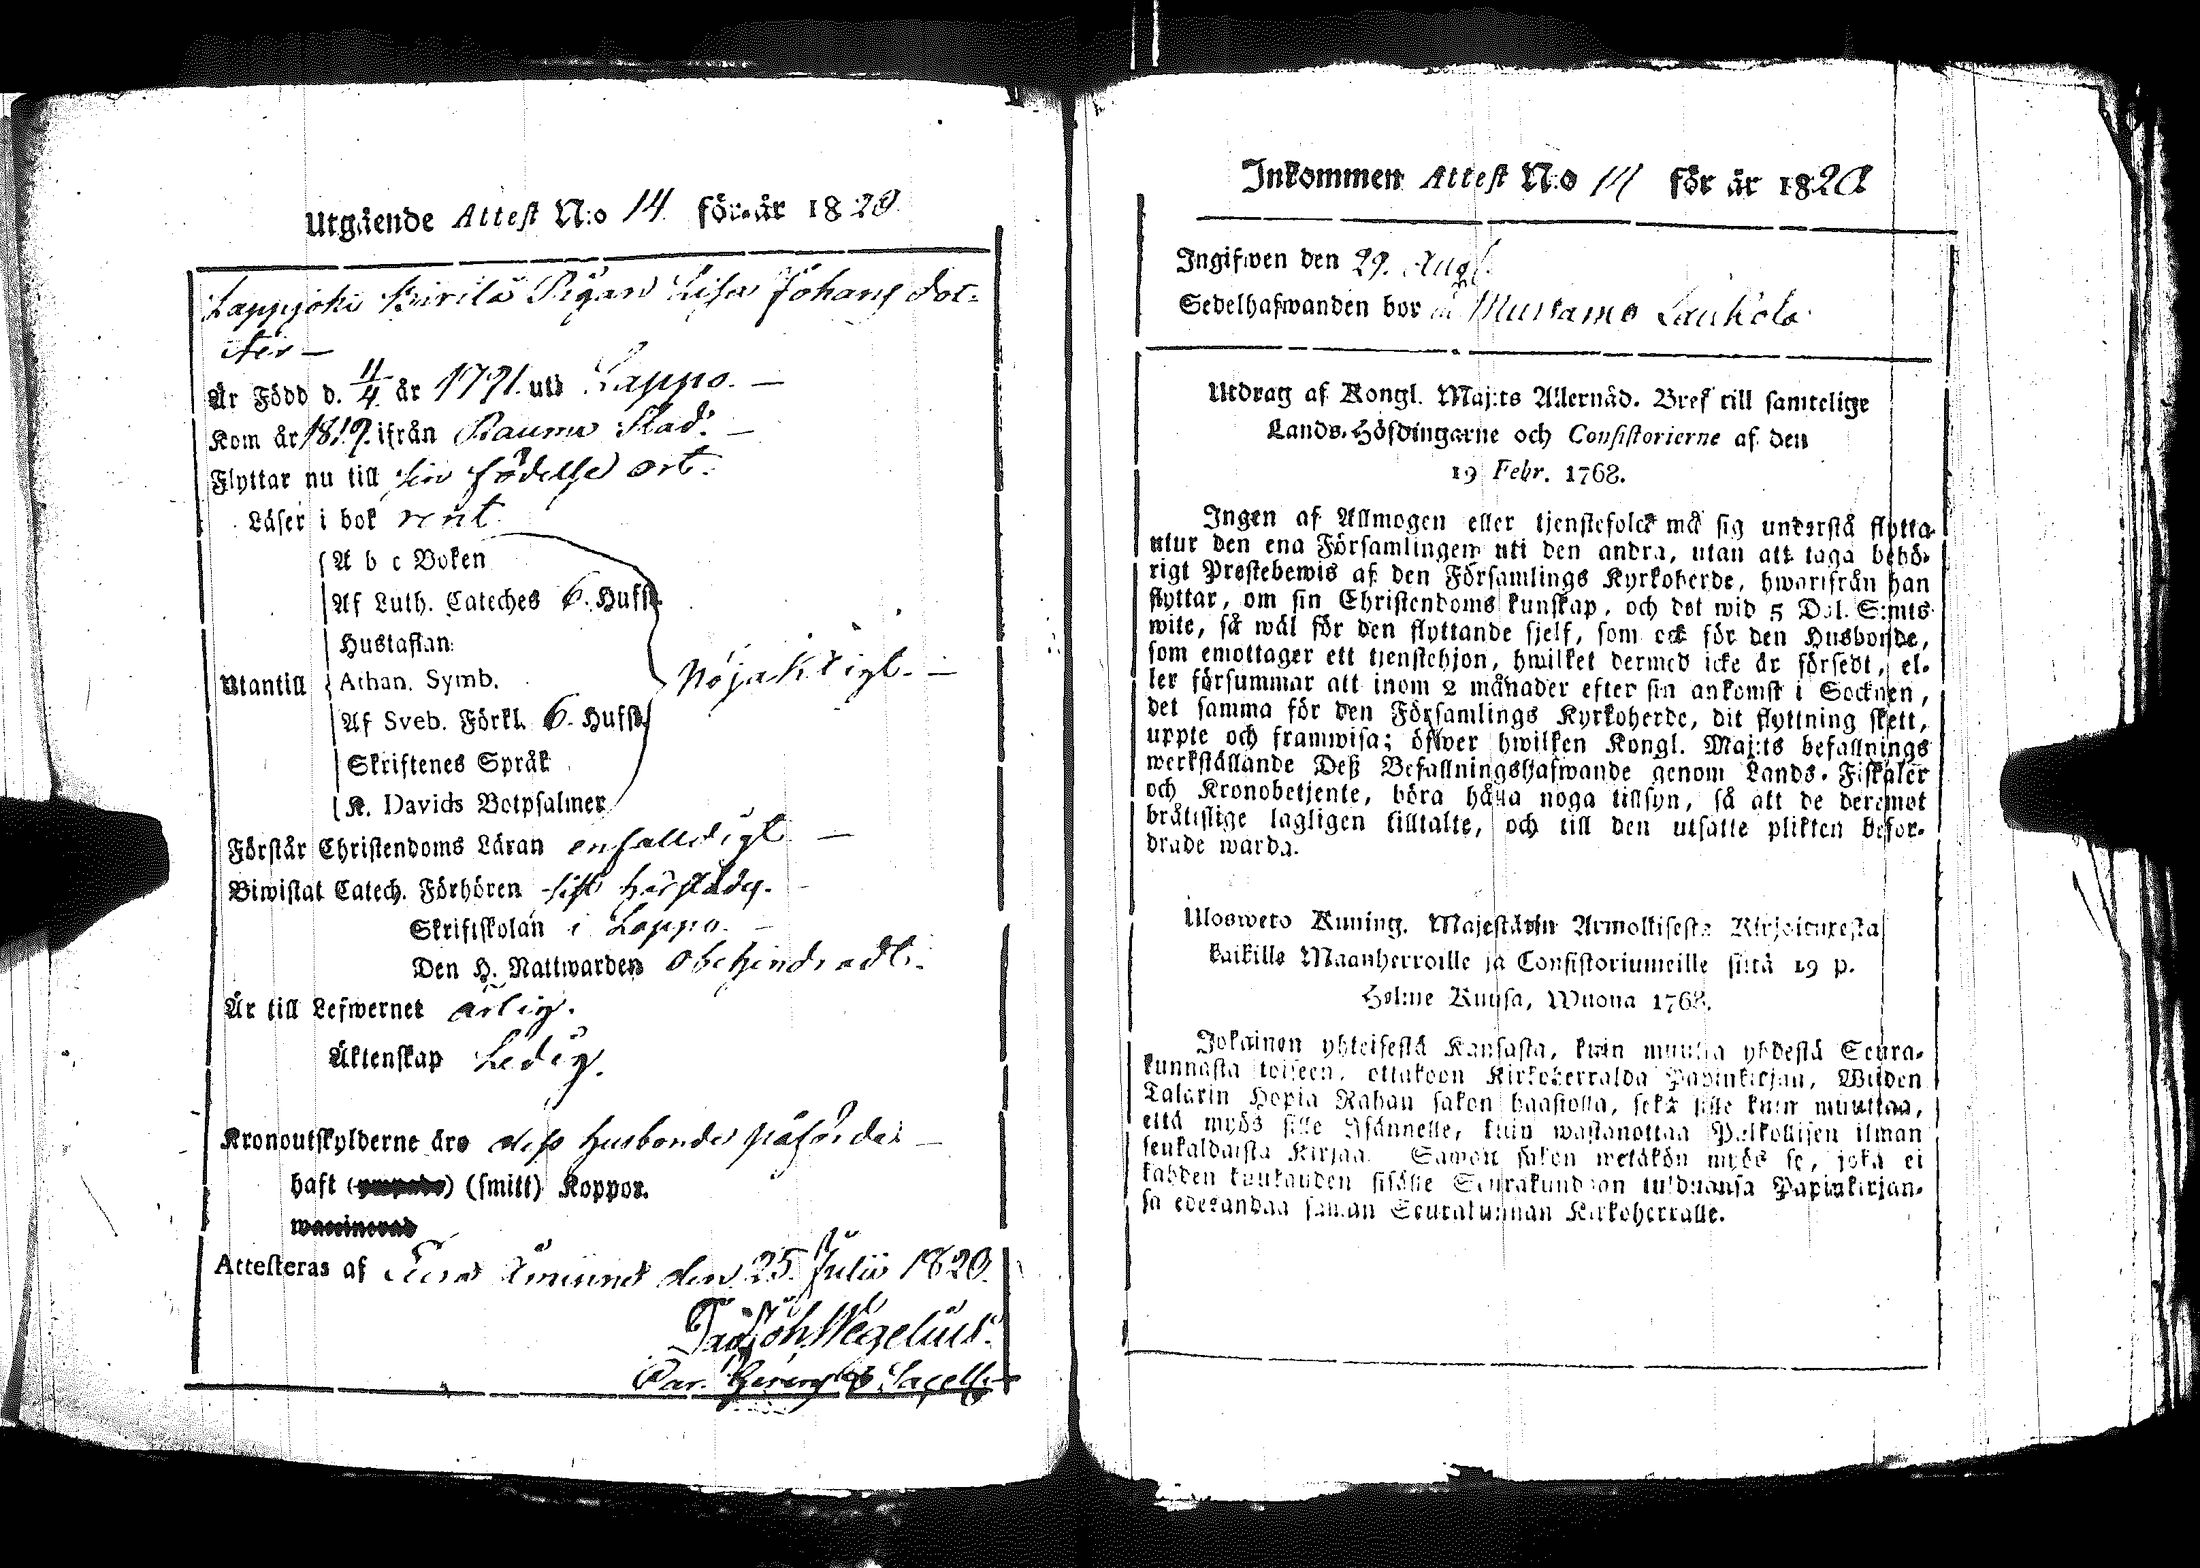 Utgående Attest N:o 14. för år 1820.
Lappjoki Kirilä Pigan Lisa Johans dot-
ter —
Är Född d. 11/4. år 1791. uti Lappo. —
Kom år 1819. ifrån Raumo Stad. —
Flyttar nu till sin födelse ort.
Läser i bok rent.
A b c Boken
Af Luth. Cateches 6. Hufst.
Hustaflan.
Utantill Athan. Symb. Nöjaktigt. —
Af Sveb. Förkl. 6. Hufst.
Skriftenes Språk
K. Davids Botpsalmer
Förstår Christendoms Läran enfalldigt —
Biwistat Catech. Förhören sist härstädes. -
Skriftskolan i Lappo. —
Den H. Nattwarden obehindradt.
Är till Lefwernet ärlig.
Äktenskap Ledig.
Kronoutskylderne äro dess husbonde påförda —
haft () (smitt) Koppor.
waccinerad
Attesteras af Eura Åminne den 25. Julii 1820.
Joh Wegelius.
Par. Sacell.
Inkommen Attest N:o 14 för år 1820
Ingifwen den 29. Aug.
Sedelhafwanden bor i Murtamo Laukola
Utdrag af Kongl. Maj:ts Allernåd. Bref till samtelige
Lands-Höfdingarne och Consistorierne af den
19 Febr. 1768.
Ingen af Allmogen eller tjenstefolck må sig understå flytta
utur den ena Församlingen uti den andra, utan att taga behö-
rigt Prestebewis af den Församlings Kyrkoherde, hwarifrån han
flyttar, om sin Christendoms kunskap, och det wid 5 Dal. S:mts
wite, så wäl för den flyttande sjelf, som ock för den Husbonde,
som emottager ett tjenstehjon, hwilket dermed icke är försedt, el-
ler försummar att inom 2 månader efter sin ankomst i Socknen,
det samma för den Församlings Kyrkoherde, dit flyttning skett,
uppte och framwisa; öfwer hwilken Kongl. Maj:ts befallnings
werkställande Deß Befallningshafwande genom Lands-Fiskaler
och Kronobetjente, böra hålla noga tillsyn, så att de deremot
brätslige lagligen tilltalte, och till den utsatte plikten befor-
drade warda.
Ulosweto Kuning. Majestätin Armollisesta Kirjoituxesta
kaikille Maanherroille ja Consistoriumeille siitä 19 p.
Helme Kuusa, Wuona 1768.
Jokainen yhteisestä Kansasta, kuin muutta yhdestä Seura-
kunnasta toiseen, ottakoon Kirkoherralda Papinkirjan, Wiiden
Talarin Hopia Rahan sakon haastolla, sekä sille kuin muuttaa,
että myös sille Isännelle, kuin wastanottaa Palkollisen ilman
senkaldaista Kirjaa. Samon sakon wetäkön myös se, joka ei
kahden kuukauden sisälle Seurakundaan tulduansa Papinkirjan-
sa edesandaa saman Seurakunnan Kirkoherralle.